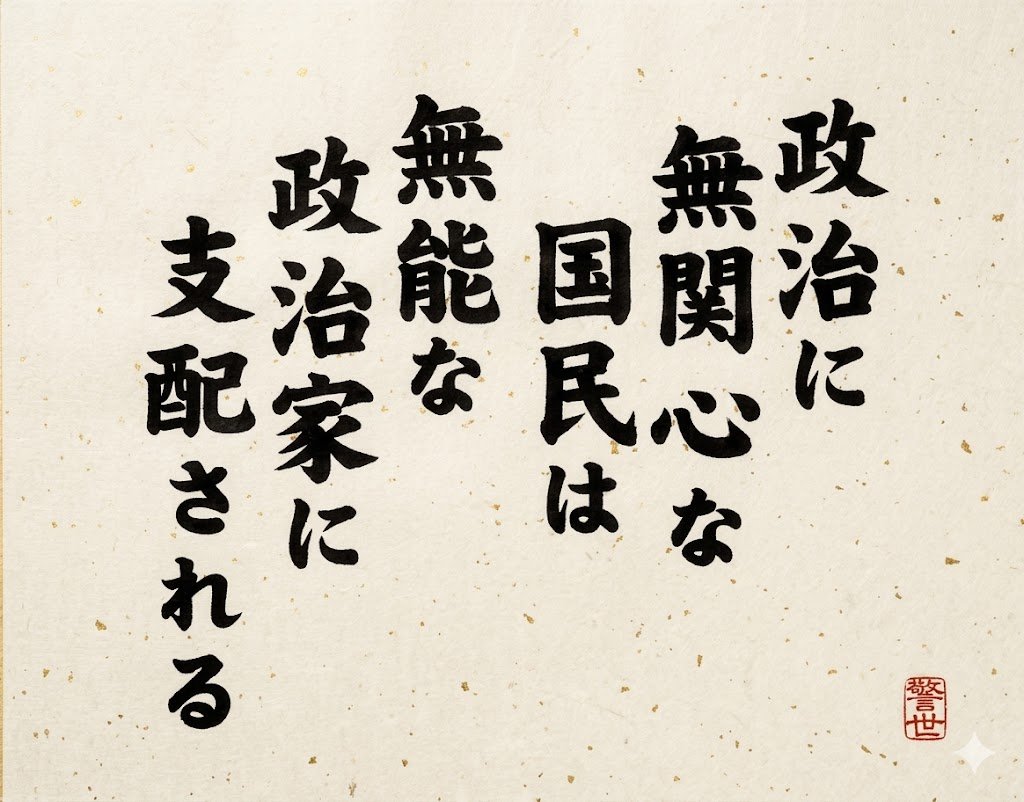 政治に
無関心な
国民は
無能な
政治家に
支配される
警世